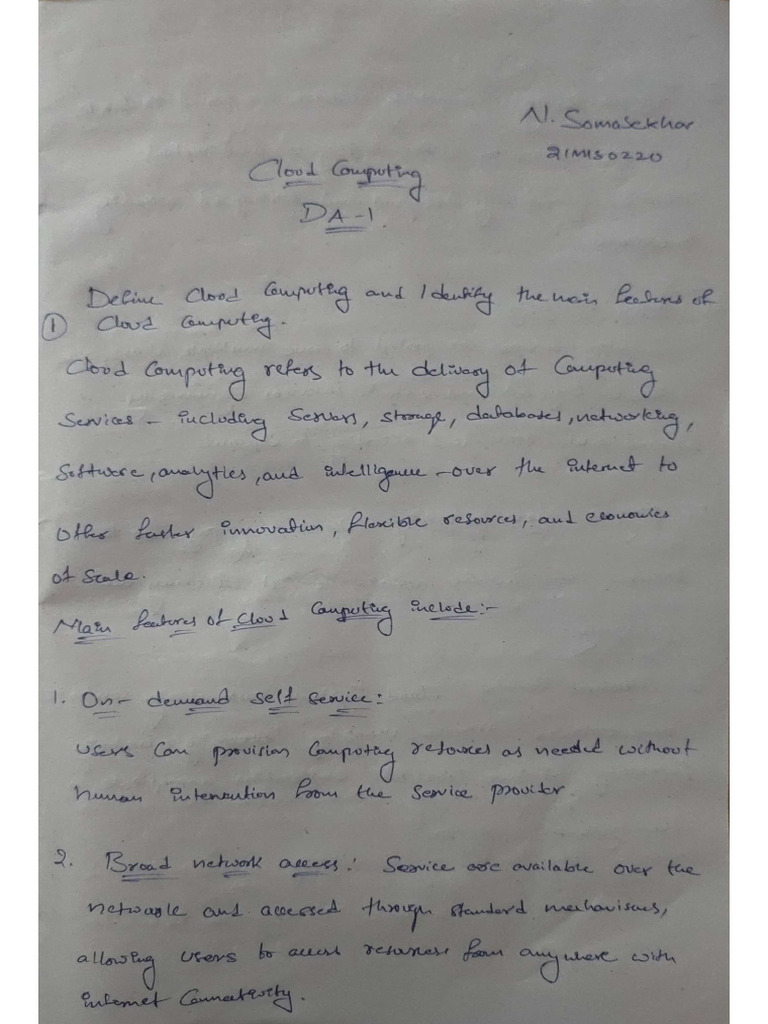 N. Somasekhar
21MIS0220
Cloud Computing
DA-1
Define Cloud Computing and Identify the main features of
① Cloud Computing.
Cloud Computing refers to the delivery of Computing
Services - including Servers, storage, databases, networking,
Software, analytics, and intelligence - over the internet to
Offer faster innovation, flexible resources, and economies
of scale.
Main features of Cloud Computing include:-
1. On-demand self service:
users can provision Computing resources as needed without
human intervention from the service provider.
2. Broad network access: Service are available over the
network and accessed through standard mechanisms,
allowing users to access resources from anywhere with
internet Connectivity.